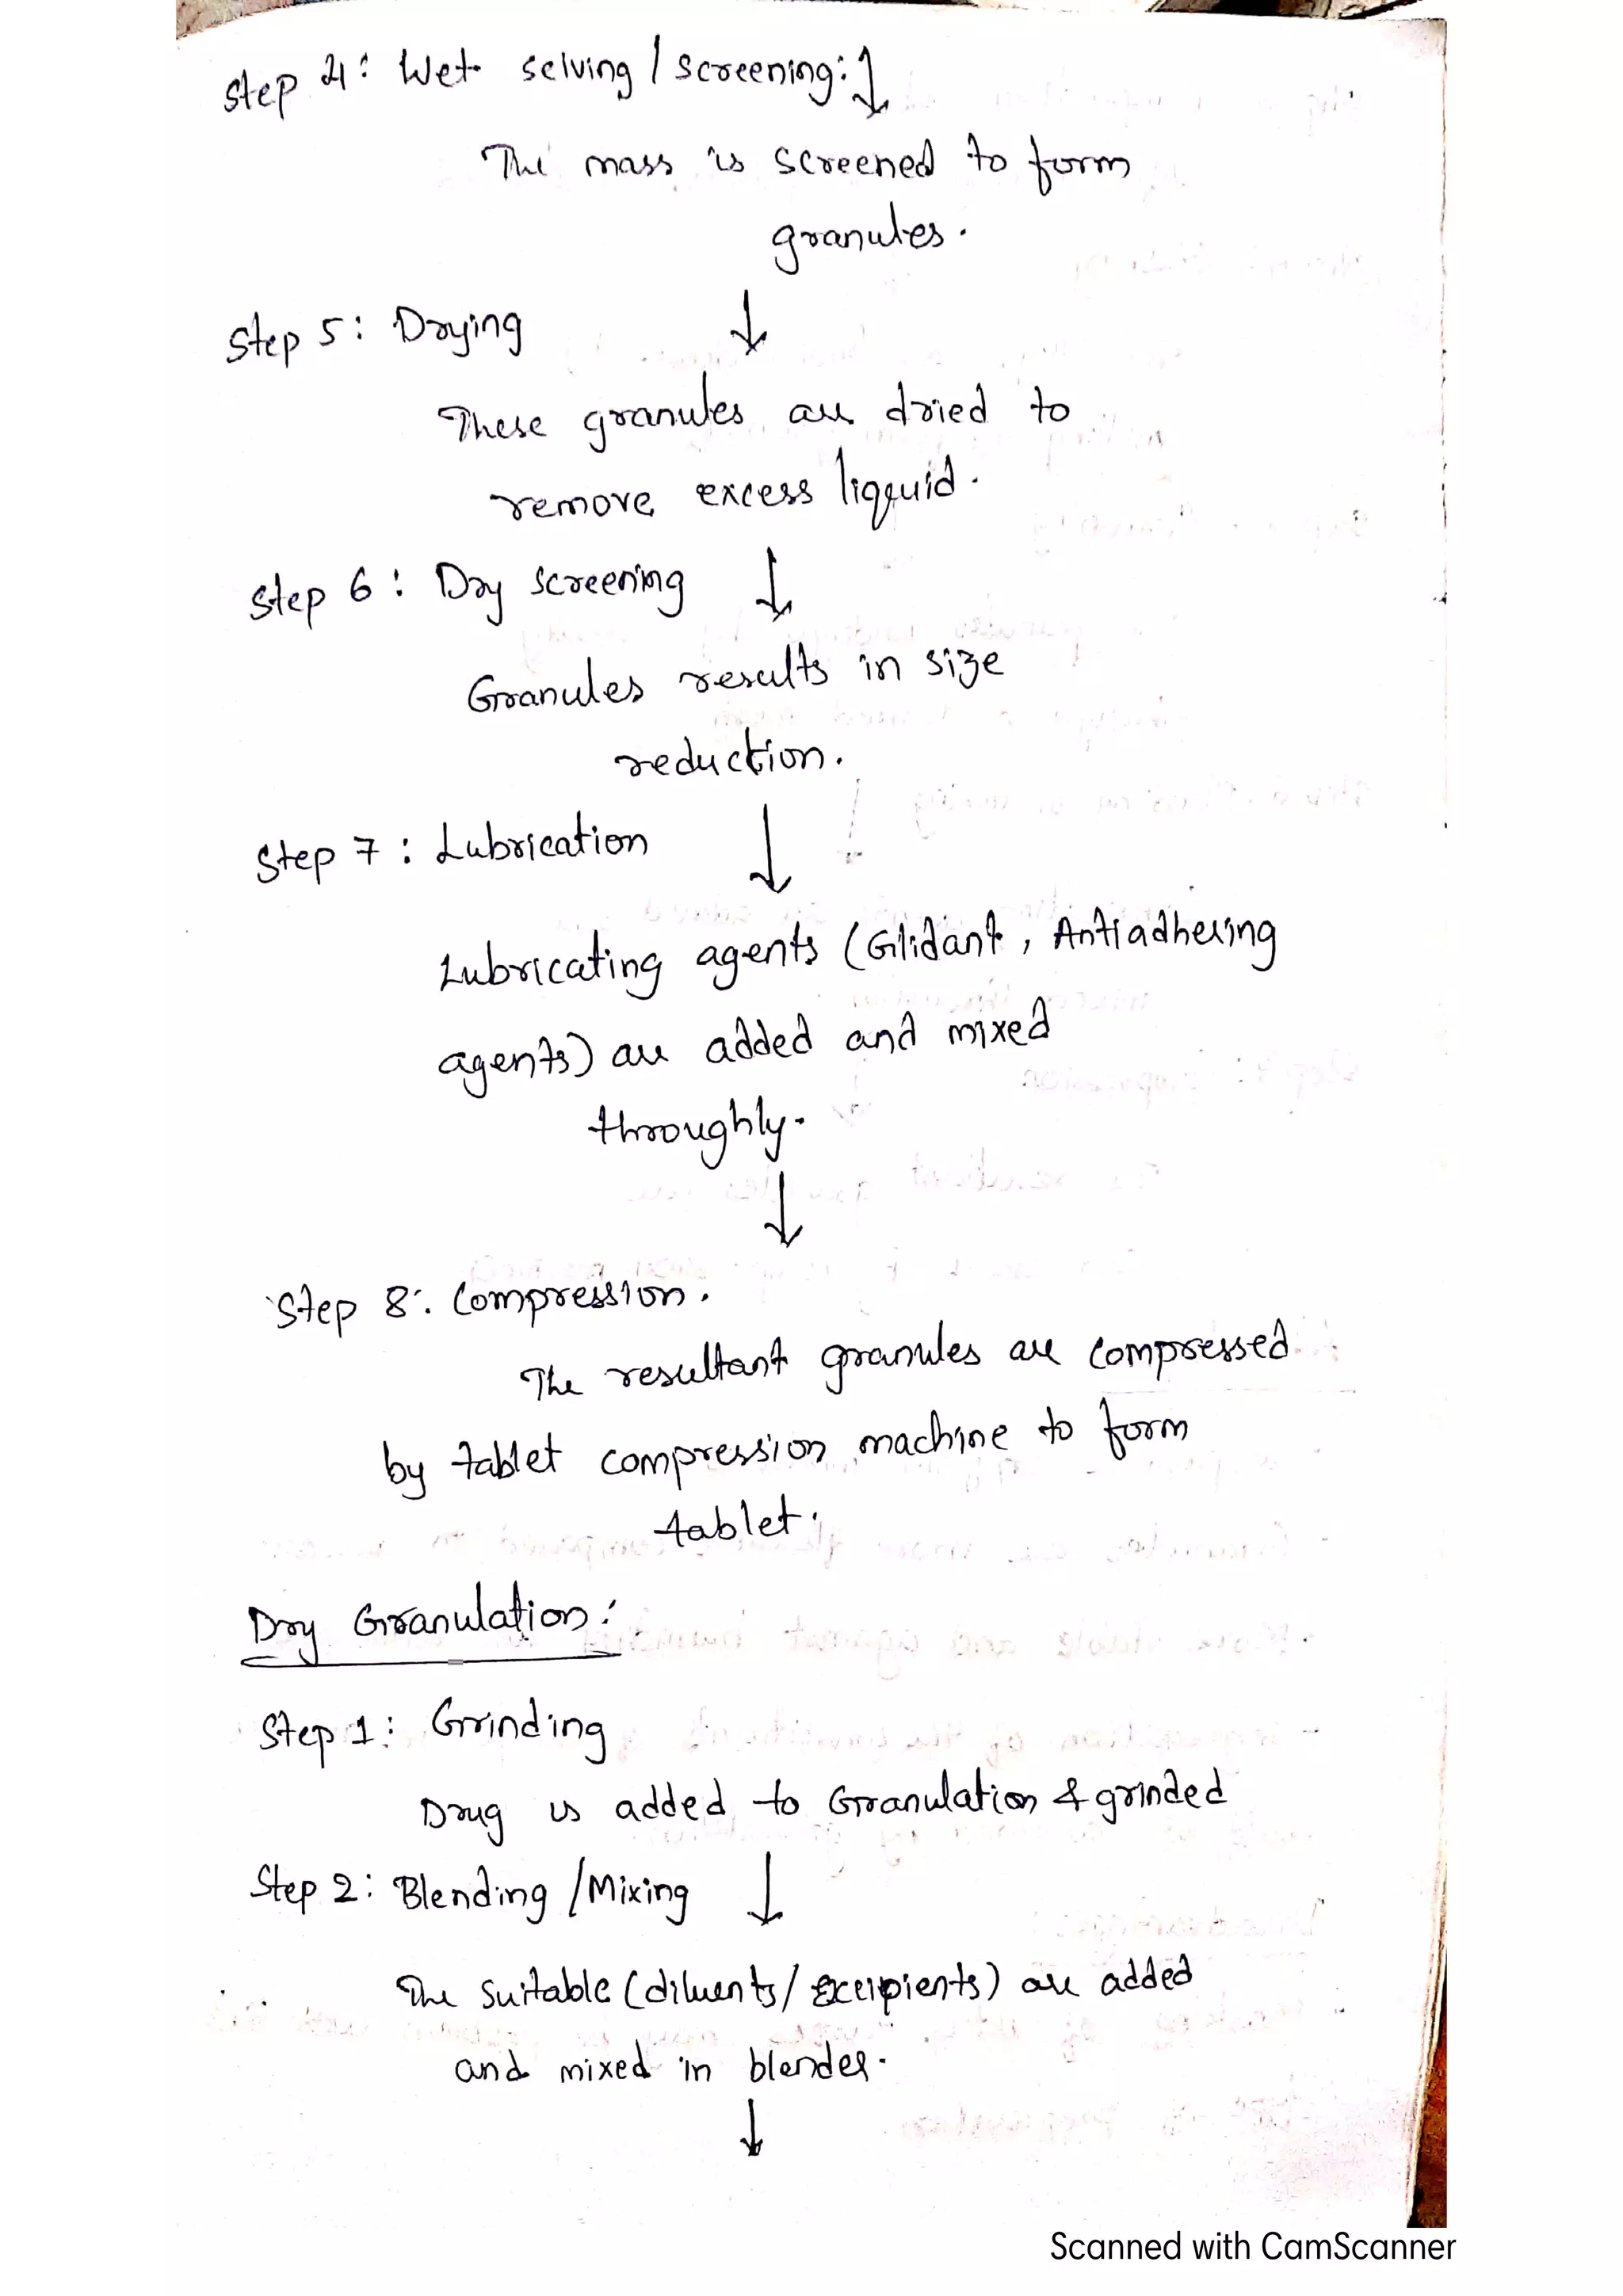 Step 4: Wet selving / screening: ↓
The mass is screened to form
granules.
Step 5: Drying ↓
These granules are dried to
remove excess liqquid.
Step 6: Dry screening ↓
Granules results in size
reduction.
Step 7: Lubrication ↓
Lubricating agents (Glidant, Antiadhering
agents) are added and mixed
throughly.
↓
Step 8: Compression.
The resultant granules are compressed
by tablet compression machine to form
tablet.
Dry Granulation:
Step 1: Grinding
Drug is added to Granulation & grinded
Step 2: Blending / Mixing ↓
The suitable (diluents/ Exceipients) are added
and mixed in blender.
↓
Scanned with CamScanner